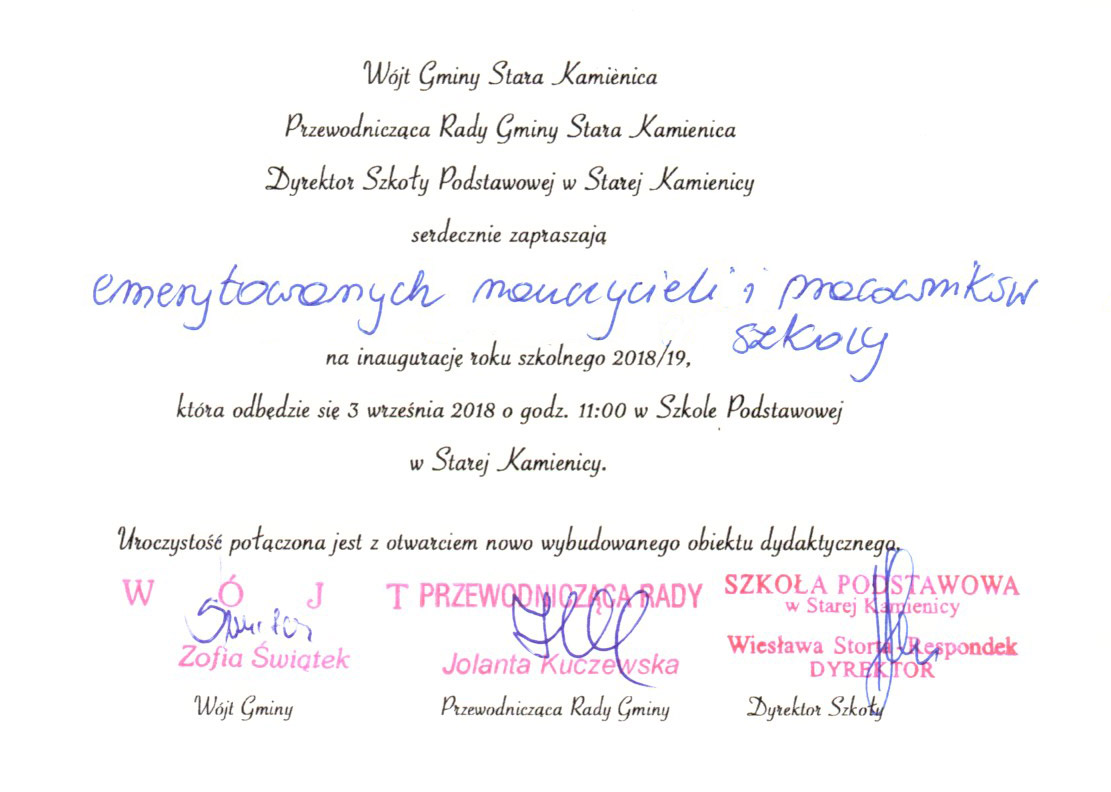 Wójt Gminy Stara Kamienica
Przewodnicząca Rady Gminy Stara Kamienica
Dyrektor Szkoły Podstawowej w Starej Kamienicy
serdecznie zapraszają
emerytowanych nauczycieli i pracowników
szkoły
na inaugurację roku szkolnego 2018/19,
która odbędzie się 3 września 2018 o godz. 11:00 w Szkole Podstawowej
w Starej Kamienicy.
Uroczystość połączona jest z otwarciem nowo wybudowanego obiektu dydaktycznego.
W Ó J T
Zofia Świątek
Wójt Gminy
PRZEWODNICZĄCA RADY
Jolanta Kuczewska
Przewodnicząca Rady Gminy
SZKOŁA PODSTAWOWA
w Starej Kamienicy
Wiesława Storta-Respondek
DYREKTOR
Dyrektor Szkoły